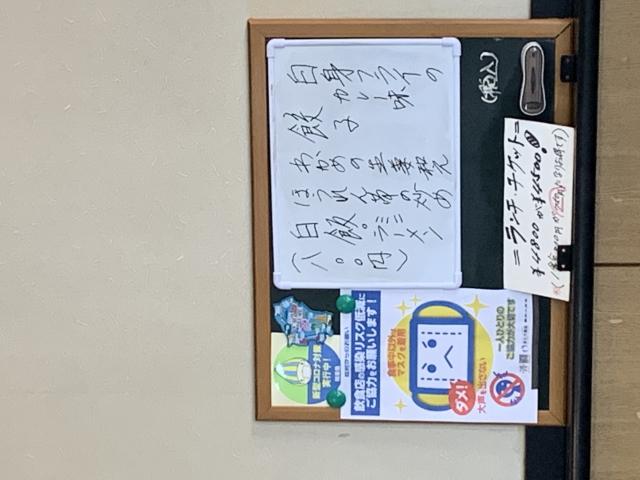 白身フライの
カレー味
餃子
わかめの生姜和え
ほうれん草の炒め
白飯。ミニラーメン
(八〇〇円)
(税込)
=ランチチケット=
新型コロナ対策
実行中!
飲食店の感染リスク低減に
ご協力をお願いします!
食事中以外は
マスクを着用
ダメ!
大声を出さない
一人ひとりの
ご協力が大切です